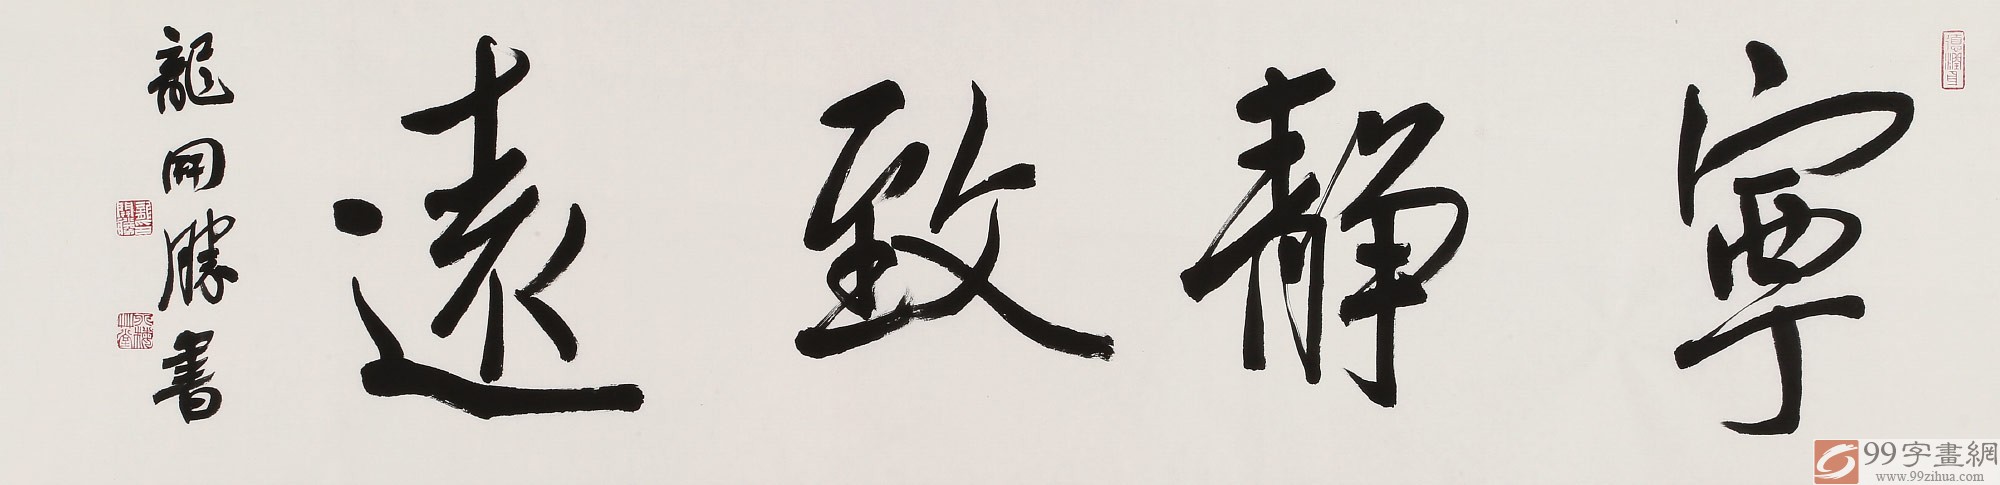 寧靜致遠
龍開勝書
99字畫網
www.99zihua.com